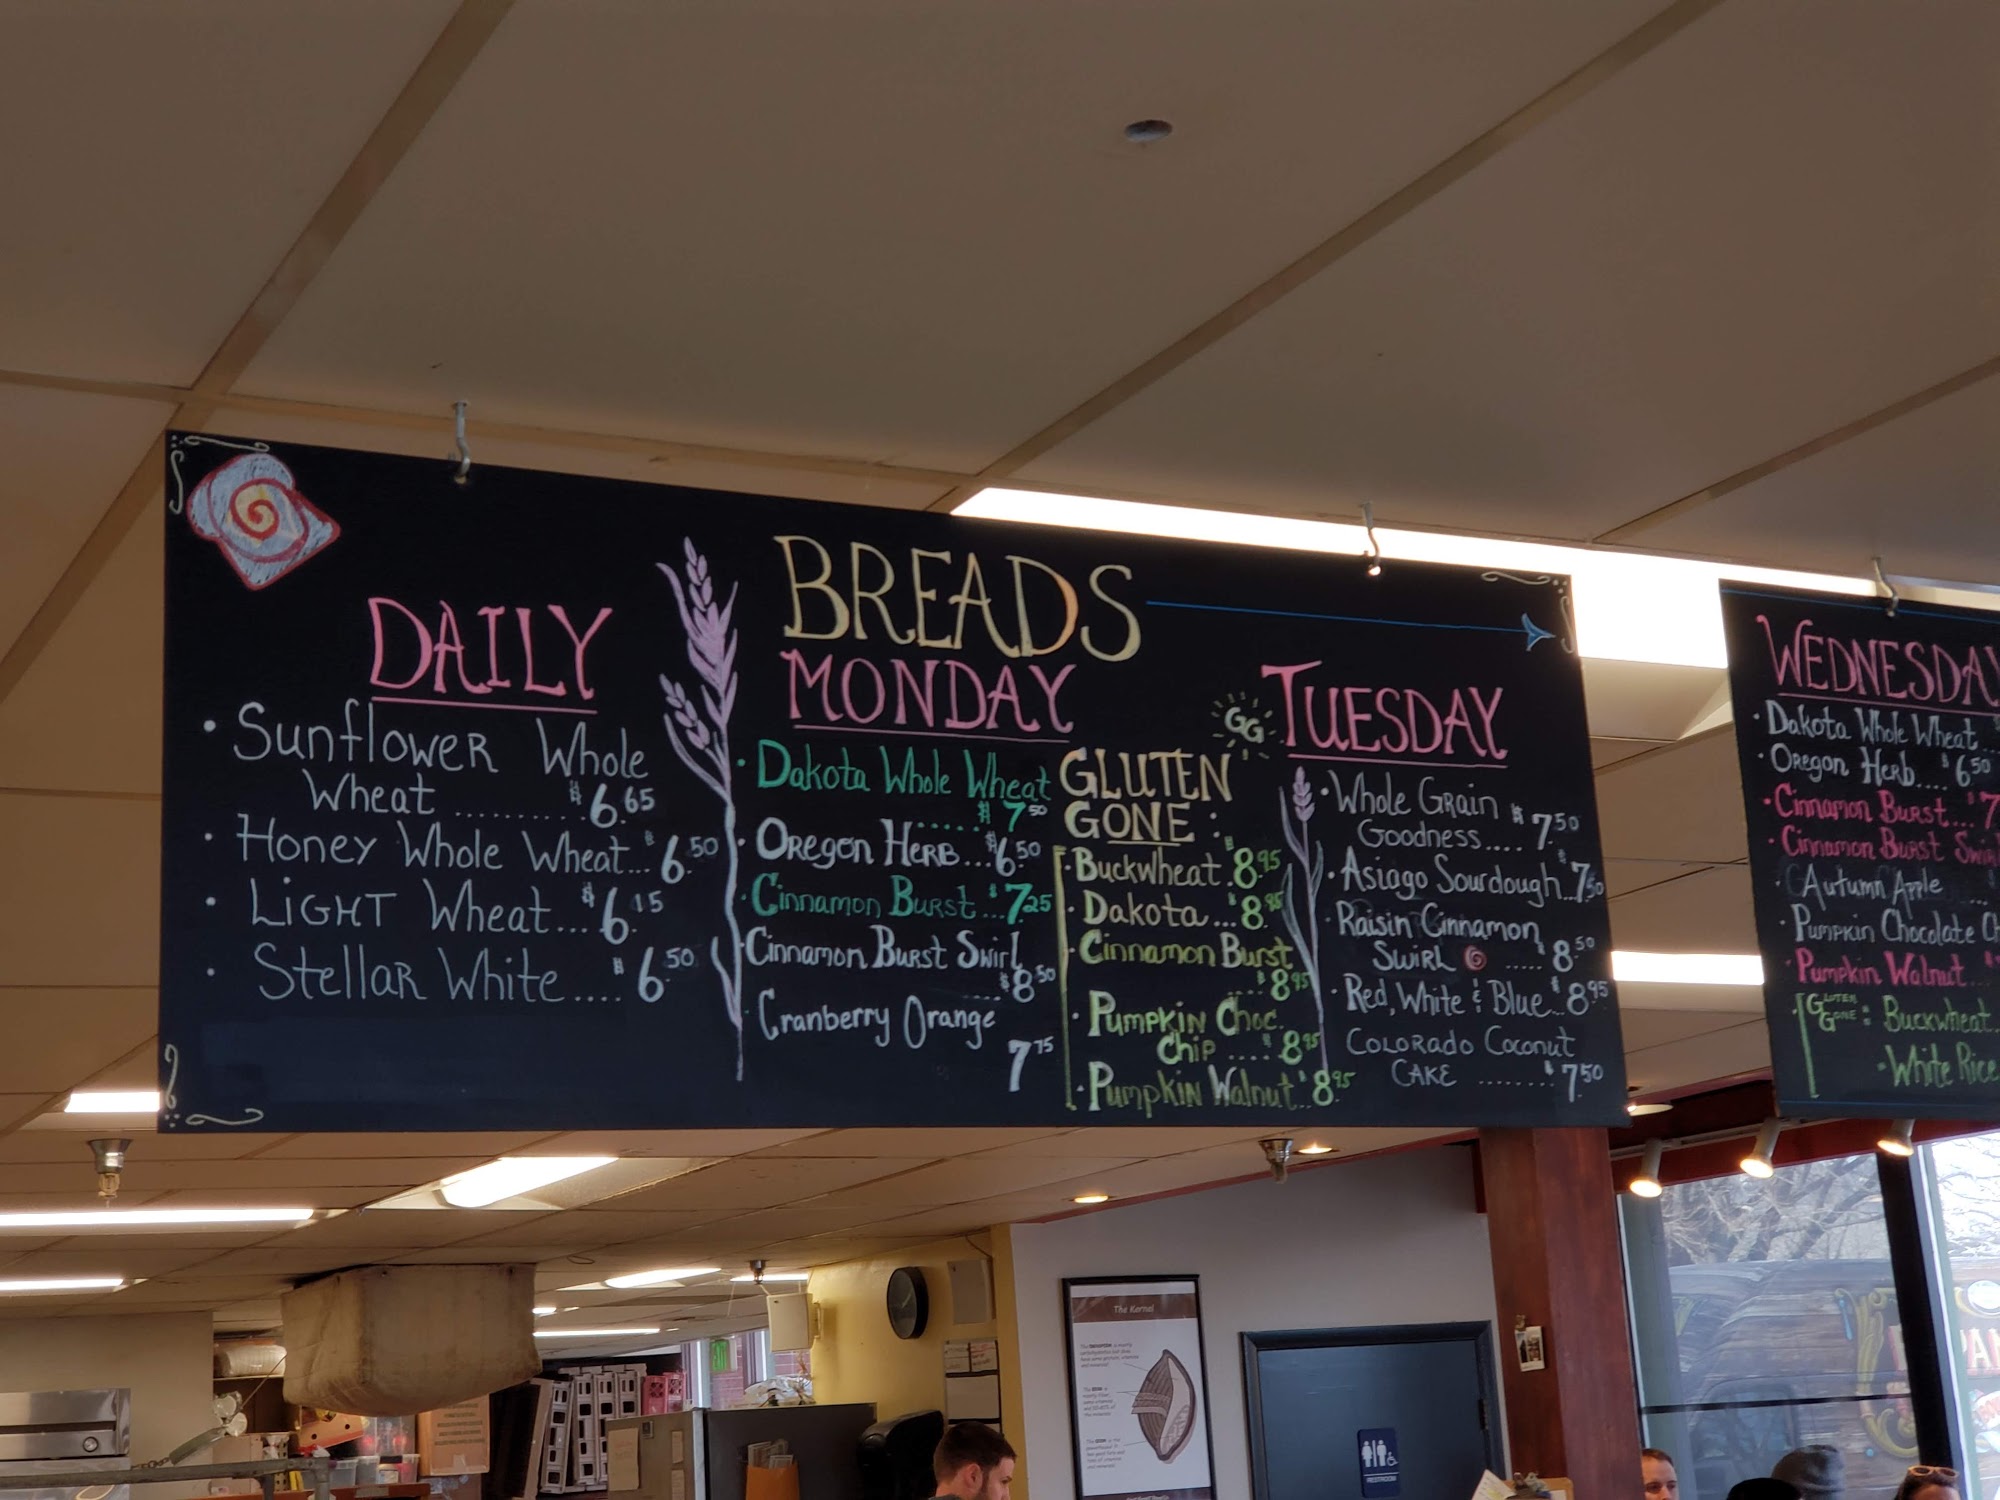 BREADS
DAILY
• Sunflower Whole
Wheat .......... $6.65
• Honey Whole Wheat... $6.50
• Light Wheat... $6.15
• Stellar White .... $6.50
MONDAY
• Dakota Whole Wheat
..... $7.50
• Oregon Herb... $6.50
• Cinnamon Burst... $7.25
• Cinnamon Burst Swirl
.... $8.50
• Cranberry Orange
7.75
GLUTEN
GONE:
• Buckwheat. $8.95
• Dakota... $8.95
• Cinnamon Burst
.... $8.95
• Pumpkin Choc.
Chip .... $8.95
• Pumpkin Walnut.. $8.95
GG
TUESDAY
• Whole Grain
Goodness.... $7.50
• Asiago Sourdough... $7.50
• Raisin Cinnamon
Swirl ..... $8.50
• Red, White & Blue... $8.95
Colorado Coconut
Cake ........ $7.50
WEDNESDAY
• Dakota Whole Wheat...
• Oregon Herb.... $6.50
• Cinnamon Burst... $7
• Cinnamon Burst Swirl
• Autumn Apple ...
• Pumpkin Chocolate Ch
• Pumpkin Walnut..
Gluten Gone: Buckwheat..
• White Rice
The Kernel
RESTROOM